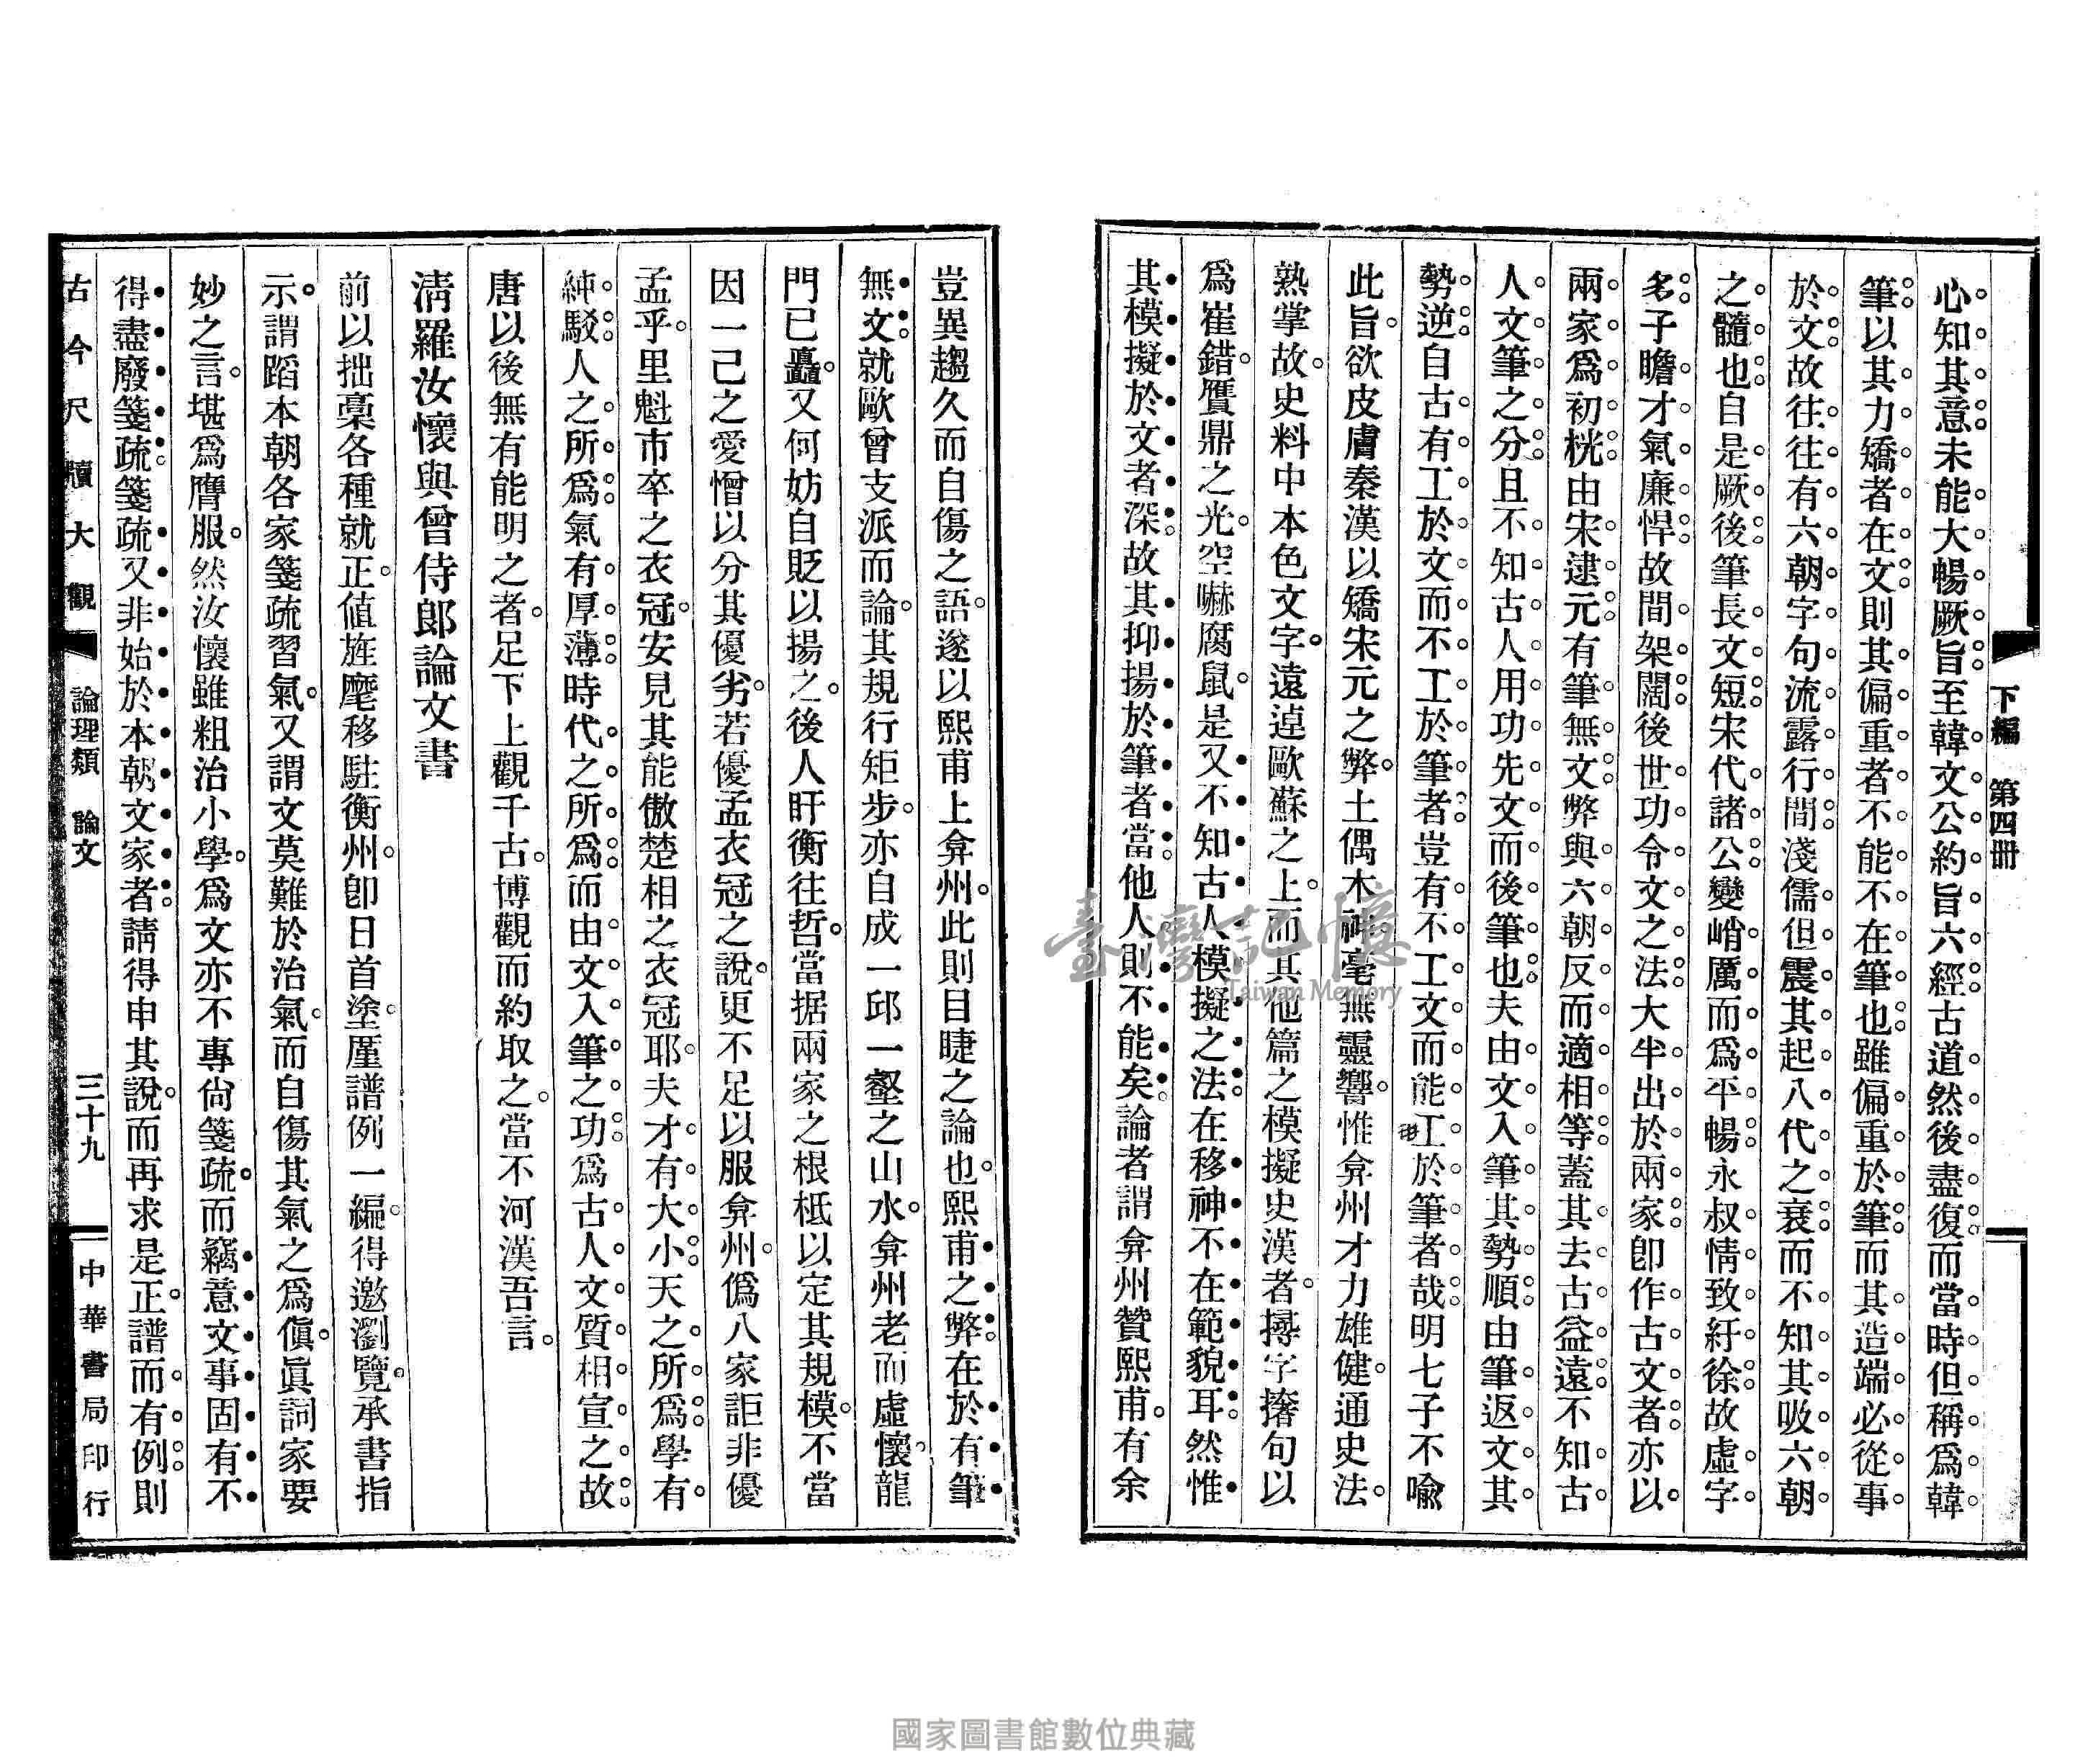 下編　第四冊
心知其意未能大暢厥旨至韓文公約旨六經古道然後盡復而當時但稱爲韓
筆以其力矯者在文則其偏重者不能不在筆也雖偏重於筆而其造端必從事
於文故往往有六朝字句流露行間淺儒但震其起八代之衰而不知其吸六朝
之髓也自是厥後筆長文短宋代諸公變峭厲而爲平暢永叔情致紆徐故虛字
多子瞻才氣廉悍故間架闊後世功令文之法大半出於兩家卽作古文者亦以
兩家爲初桄由宋逮元有筆無文弊與六朝反而適相等蓋其去古益遠不知古
人文筆之分且不知古人用功先文而後筆也夫由文入筆其勢順由筆返文其
勢逆自古有工於文而不工於筆者豈有不工文而能工於筆者哉明七子不喩
此旨欲皮膚秦漢以矯宋元之弊土偶木神毫無靈響惟弇州才力雄健通史法
熟掌故史料中本色文字遠逴歐蘇之上而其他篇之模擬史漢者撏字撦句以
爲崔錯贋鼎之光空嚇腐鼠是又不知古人模擬之法在移神不在範貌耳然惟
其模擬於文者深故其抑揚於筆者當他人則不能矣論者謂弇州贊熙甫有余
豈異趨久而自傷之語遂以熙甫上弇州此則目睫之論也熙甫之弊在於有筆
無文就歐曾支派而論其規行矩步亦自成一邱一壑之山水弇州老而虛懷龍
門已矗又何妨自貶以揚之後人盱衡往哲當据兩家之根柢以定其規模不當
因一己之愛憎以分其優劣若優孟衣冠之說更不足以服弇州僞八家詎非優
孟乎里魁市卒之衣冠安見其能傲楚相之衣冠耶夫才有大小天之所爲學有
純駁人之所爲氣有厚薄時代之所爲而由文入筆之功爲古人文質相宣之故
唐以後無有能明之者足下上觀千古博觀而約取之當不河漢吾言
淸羅汝懷與曾侍郎論文書
前以拙稾各種就正値旌麾移駐衡州卽日首塗厪譜例一編得邀瀏覽承書指
示謂蹈本朝各家箋疏習氣又謂文莫難於治氣而自傷其氣之爲傎眞詞家要
妙之言堪爲膺服然汝懷雖粗治小學爲文亦不專尙箋疏而竊意文事固有不
得盡廢箋疏箋疏又非始於本朝文家者請得申其說而再求是正譜而有例則
古今尺牘大觀　論理類　論文　三十九　中華書局印行
臺灣記憶
Taiwan Memory
國家圖書館數位典藏